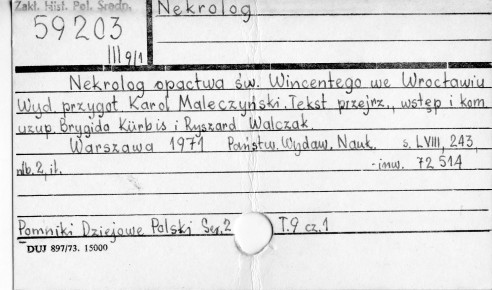 Zakł. Hist. Pol. Średn.
Nekrolog
59203
III 9/1
Nekrolog opactwa św. Wincentego we Wrocławiu
Wyd. przygot. Karol Maleczyński. Tekst przejrz., wstęp i kom.
uzup. Brygida Kürbis i Ryszard Walczak.
Warszawa 1971 Państw. Wydaw. Nauk. s. LVIII, 243,
nlb. 2, il. - inw. 72 514
Pomniki Dziejowe Polski Ser. 2 T. 9 cz. 1
DUJ 897/73. 15000